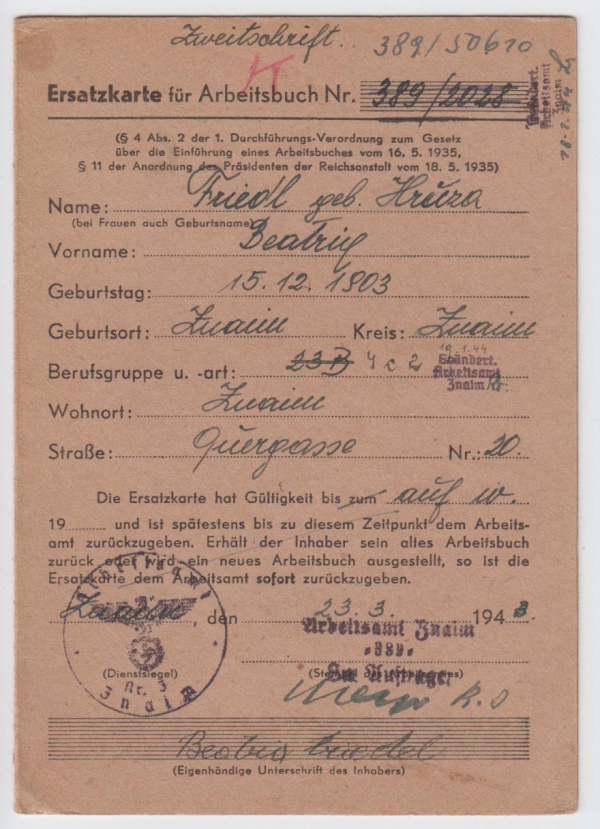 Zweitschrift. 389/50610
Ersatzkarte für Arbeitsbuch Nr. 389/2028
Geändert.
Arbeitsamt
Znaim
(§ 4 Abs. 2 der 1. Durchführungs-Verordnung zum Gesetz
über die Einführung eines Arbeitsbuches vom 16. 5. 1935,
§ 11 der Anordnung des Präsidenten der Reichsanstalt vom 18. 5. 1935)
Name: Friedl geb. Hruza
(bei Frauen auch Geburtsname)
Vorname: Beatrix
Geburtstag: 15. 12. 1903
Geburtsort: Znaim Kreis: Znaim
Berufsgruppe u. -art: 23 B 4 c 2
19.1.44
Geändert.
Arbeitsamt
Znaim
Wohnort: Znaim
Straße: Quergasse Nr.: 20.
Die Ersatzkarte hat Gültigkeit bis zum auf W.
19 und ist spätestens bis zu diesem Zeitpunkt dem Arbeits-
amt zurückzugeben. Erhält der Inhaber sein altes Arbeitsbuch
zurück oder wird ein neues Arbeitsbuch ausgestellt, so ist die
Ersatzkarte dem Arbeitsamt sofort zurückzugeben.
Znaim, den 23. 3. 1943.
Arbeitsamt
Nr. 3
Znaim
(Dienstsiegel)
Arbeitsamt Znaim
389
Im Auftrage:
Beatrix Friedl
(Eigenhändige Unterschrift des Inhabers)